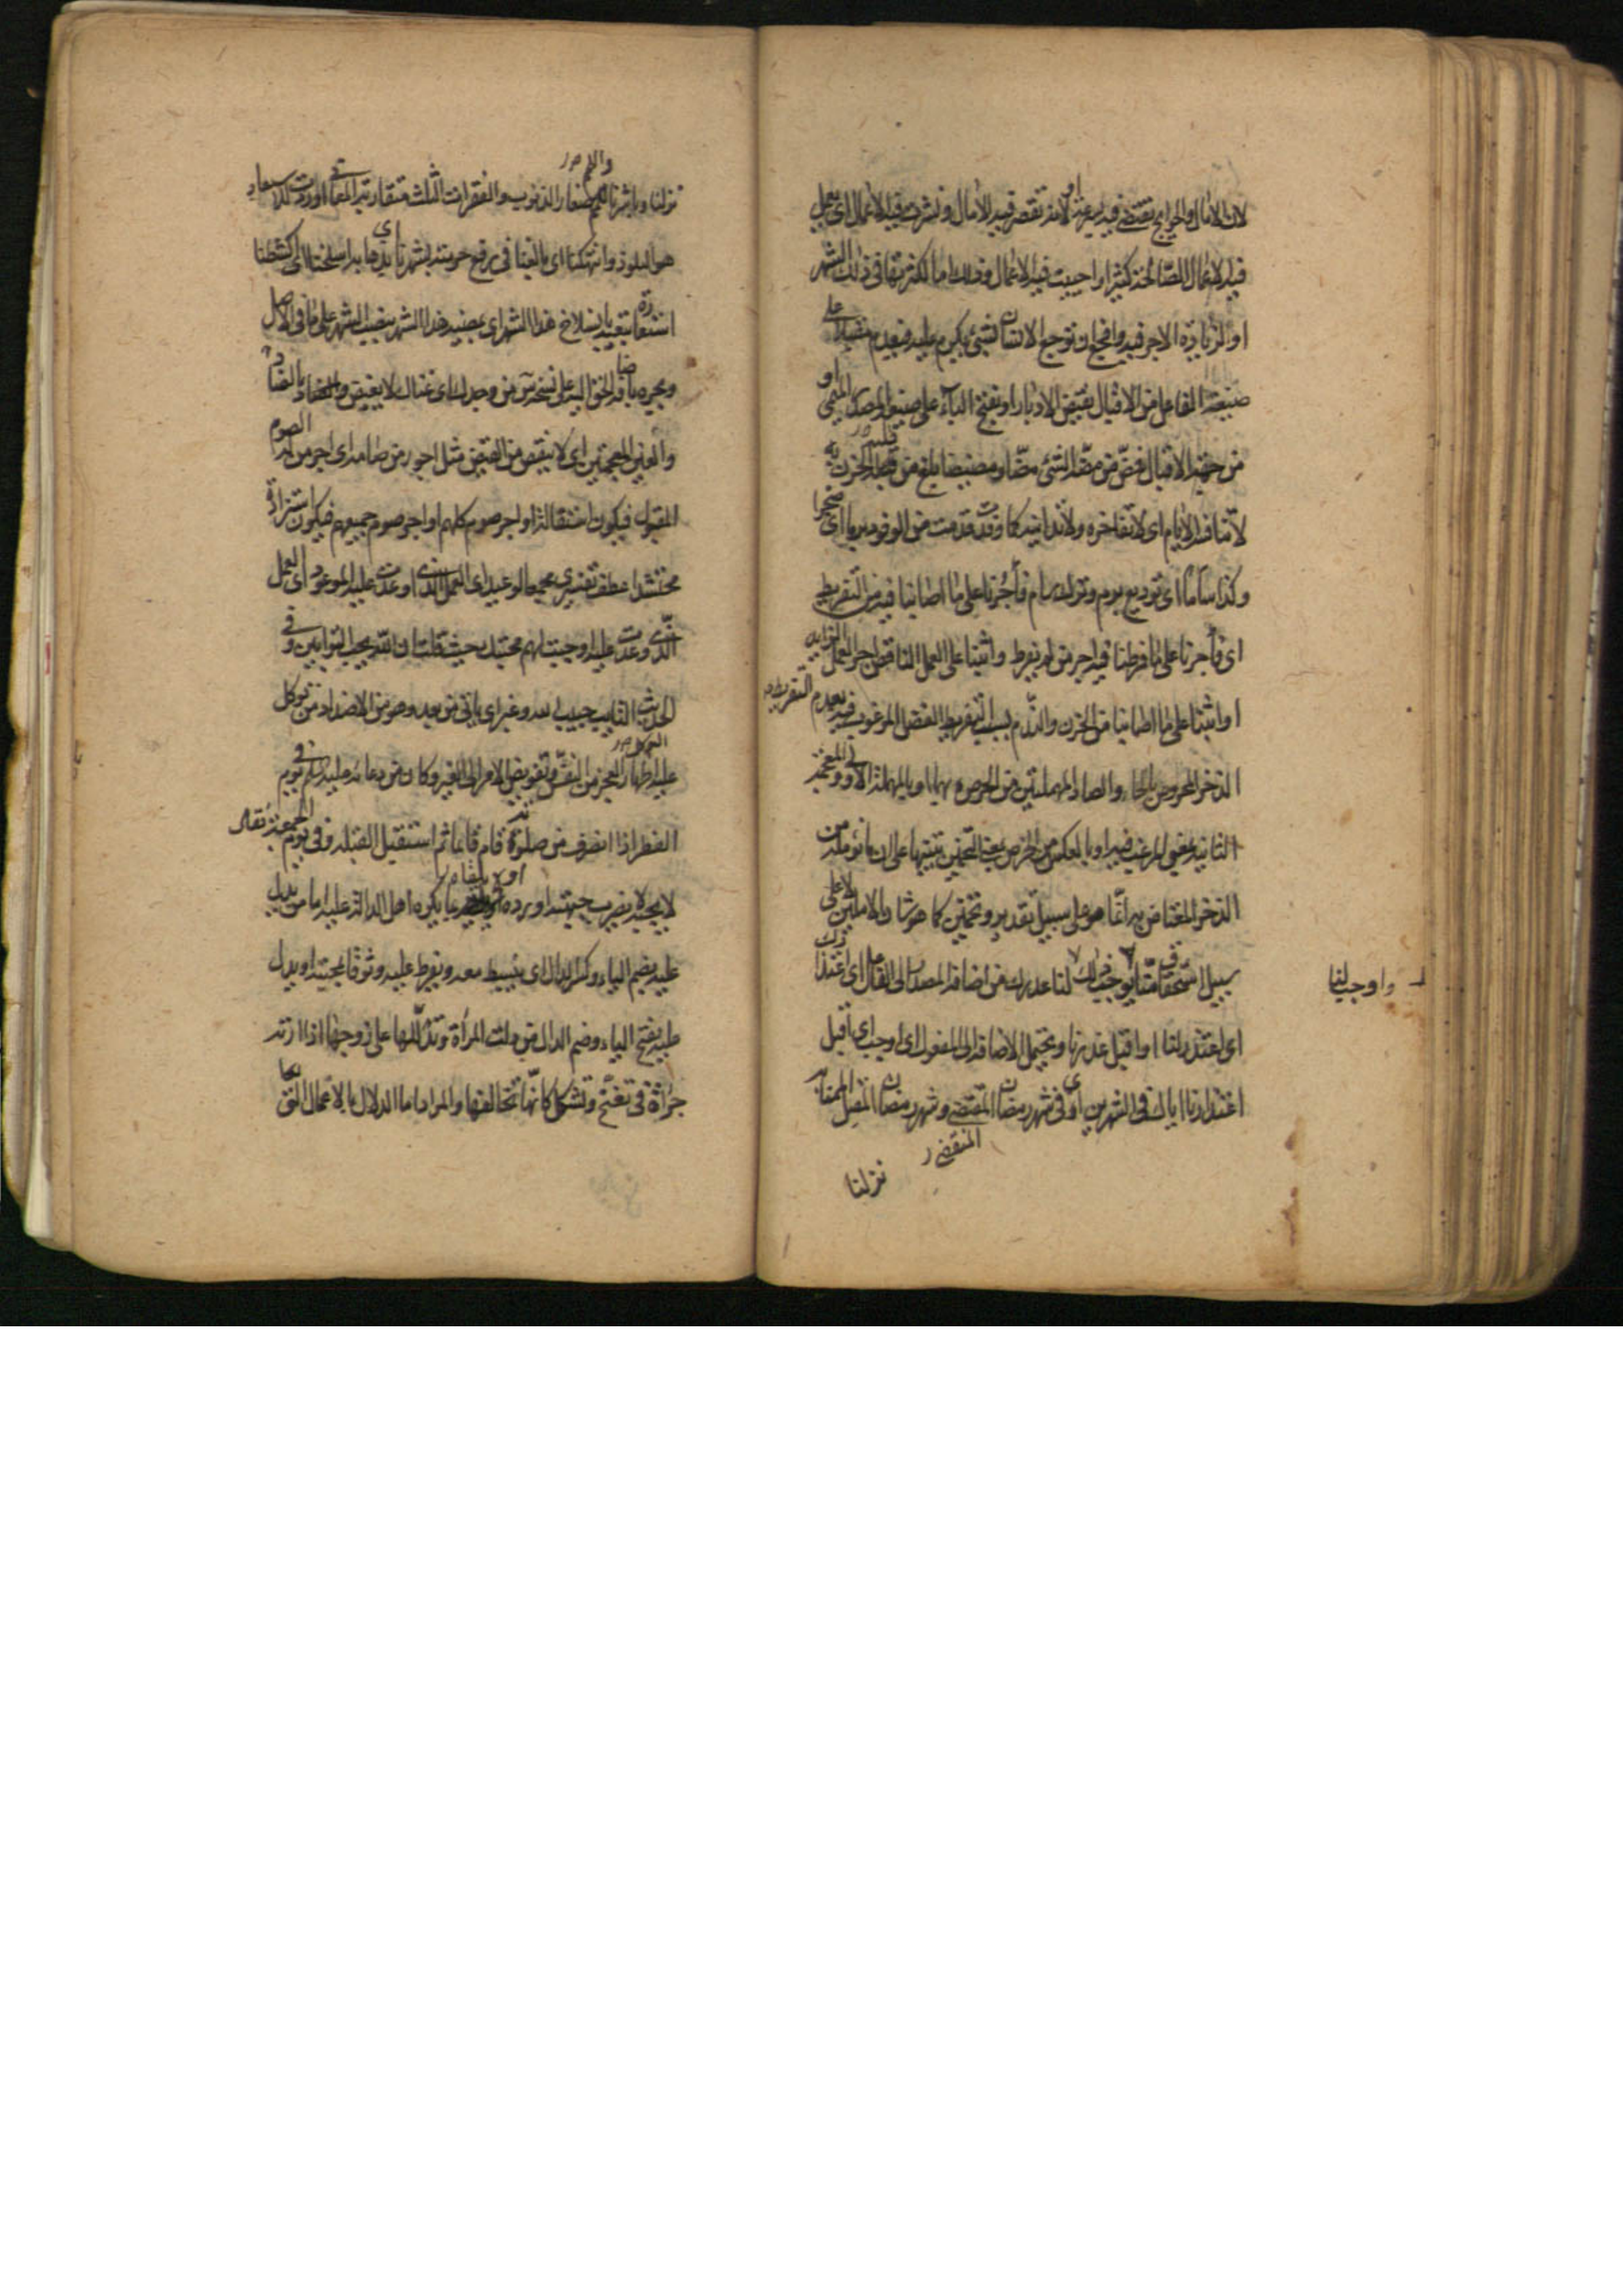 لان الامال والحوايج تقتضى فيه بسرعة او لانه تقصر فيه الامال ونشرت فيه الاعمال اى يعمل
فيه الاعمال الصالحة كثيرا او احييت فيه الاعمال وذلك اما لكثرتها فى ذلك الشهر
او لزيادة الاجر فيه وافجع ان توجع الانسان بشئ يكرم عليه فيعدمه مقبلا على
صيغة الفاعل من الاقبال نقيض الادبار او بفتح الباء على صيغة المصدر الميمى او
من جهة الاقبال فمضّ من مضّه الشئ مضّا ومضيضا بلغ من قلبه الحزن به
لا تنافسه الايام اى لا تفاخره ولا تدانيه كما وفدت قدمت من الوفود برما اى ضجرا
وكذا سأما اى توديع برم وترك سام فأجرنا على ما اصابنا فيه من التفريط
اى فأجرنا على ما فرطنا فيه اجر من لم يفرط واثبنا على العمل الناقص اجر العمل الزايد
او اثبنا على ما اصابنا من الحزن والندم بسبب التفريط الفضل المرغوب فيه بعدم التفريط
الذخر المحروص بالحاء والصاد المهملتين من الحرص بهما او بالمهملة الاولى والمعجمة
الثانية بمعنى المرغب فيه او بالعكس من الخرص بمعنى التخمين تنبيها على ان ما نؤمله من
الذخر المعتاض به انما هو على سبيل تقدير وتخمين كما هو شان الاملين لا على
سبيل استحقاق منا يوجب ذلك لنا عذرك من اضافة المصدر الى الفاعل اى اعتذارك
وا وجب لنا
اى اعتذر لنا او اقبل عذرنا ويحتمل الاضافة الى المفعول اى اوجب اى اقبل
اعتذارنا اياك فى الشهرين اى فى شهر رمضان المقتضى وشهر رمضان المقبل
المنقضى
نزلنا
نزلنا وباشرنا اللمم صغار الذنوب والفقرات الثلث متقاربة المعانى اوردت للاستعاذة
هو البلوذ وانتهكنا اى بالغنا فى رفع حرمته بشهرنا اى بدعائه اسلخنا اى اكشطنا
استعارة بتعبيد بانسلاخ هذا الشهر اى بمضيه هذا الشهر بنصب الشهر على ما فى الاصل
وبجره باضافة الحق اليه على نسخة س من وجدك اى غناك لا يغيض بالضاد
والغين المعجمتين اى لا ينقص من الغيض مثل اجور من صامه اى اجر من له الصوم
المقبول فيكون استقالة او اجر صوم كلهم او اجر صوم جميعهم فيكون استزادة
محتشدا عطف تفسيرى مجمعا لو عيد اى العمل الذى اوعدت عليه الموعود اى العمل
الذى وعدت عليه اوجبت لهم محبتك بحيث قلت ان الله يحب التوابين وفى
الحديث التايب حبيب الله وغبر اى باقى من بعيد وهو من الاضداد من توكل
عليه اظهار العجز من النفس وتفويض الامر الى الغير وكان من دعائه عليه السلام فى يوم
الفطر اذا انصرف من صلوته قام قائما ثم استقبل القبلة وفى يوم الجمعة فقال
لا يجبه لا يضرب جبهته او يرده او لا يلقاه بما يكره اهل الدالة عليه اما من يدل
عليه بضم الياء وكسر الدال اى ينبسط معه ويفرط عليه وثوقا بمحبته او يدل
عليه بفتح الياء وضم الدال من دلت المرأة وتدللها على زوجها اذا ارته
جرأة فى تغنج وتشكل كانها تخالفها والمراد اما الدلال بالاعمال التى